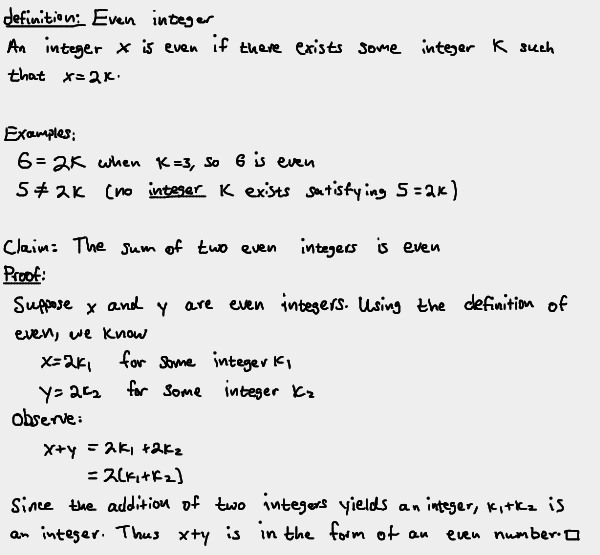 definition: Even integer
An integer x is even if there exists some integer K such
that x=2K.
Examples:
6=2K when K=3, so 6 is even
5≠2K (no integer K exists satisfying 5=2K)
Claim: The sum of two even integers is even
Proof:
Suppose x and y are even integers. Using the definition of
even, we know
x=2K₁ for some integer K₁
y=2K₂ for some integer K₂
Observe:
x+y = 2K₁+2K₂
= 2(K₁+K₂)
Since the addition of two integers yields an integer, K₁+K₂ is
an integer. Thus x+y is in the form of an even number.□